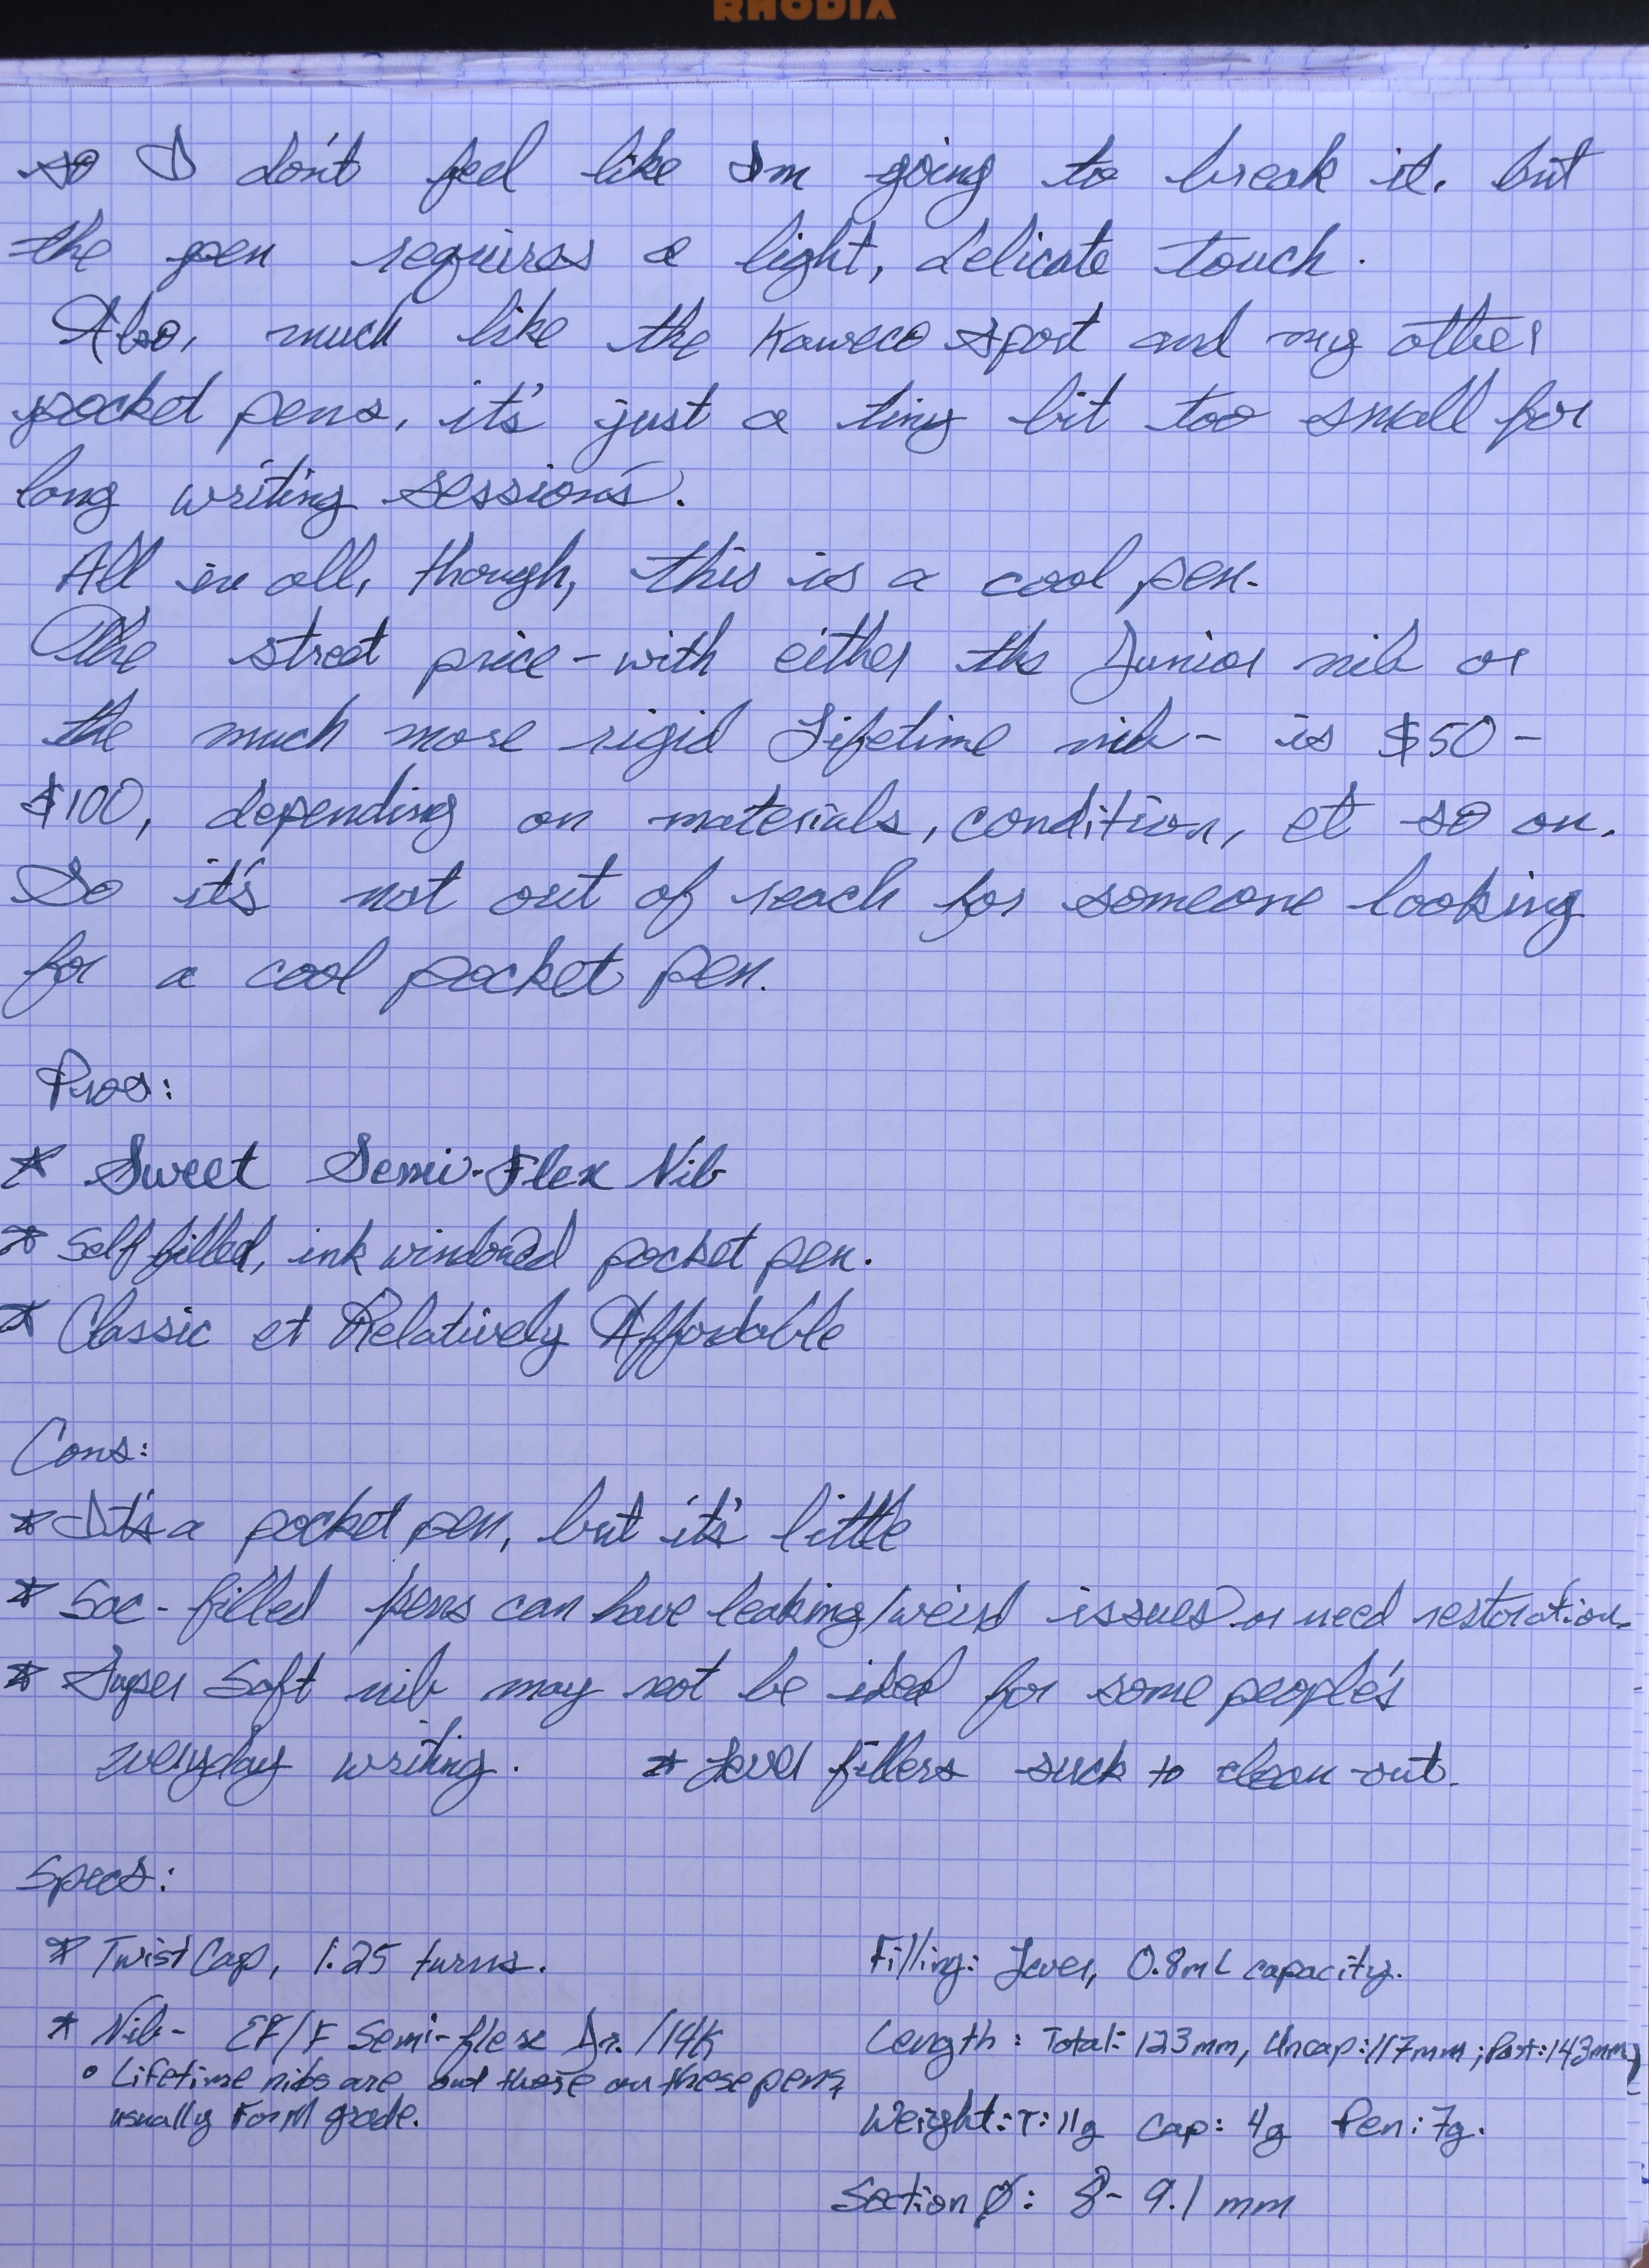 RHODIA
so I don't feel like Im going to break it. but
the pen requires a light, delicate touch.
Also, much like the Kaweco sport and my other
pocket pens, it's just a tiny bit too small for
long writing sessions.
All in all, though, this is a cool pen.
The street price - with either the Junior nib or
the much more rigid Lifetime nib - is $50 -
$100, depending on materials, condition, et so on.
So it's not out of reach for someone looking
for a cool pocket pen.
Pros:
* Sweet Semi-Flex Nib
* Self filled, ink windowed pocket pen.
* Classic et Relatively Affordable
Cons:
* It's a pocket pen, but it's little
* Sac-filled pens can have leaking/weird issues or need restoration.
* Super Soft nib may not be ideal for some people's
everyday writing. * Lever fillers suck to clean out.
Specs:
* Twist Cap, 1.25 turns.
Filling: Lever, 0.8mL capacity.
* Nib- EF/F Semi-flex Jr. /14K
Length: Total: 123mm, Uncap: 117mm; Post: 143mm
• Lifetime nibs are out there on these pens,
usually F or M grade.
Weight: T: 11g Cap: 4g Pen: 7g.
Section Ø: 8- 9.1 mm